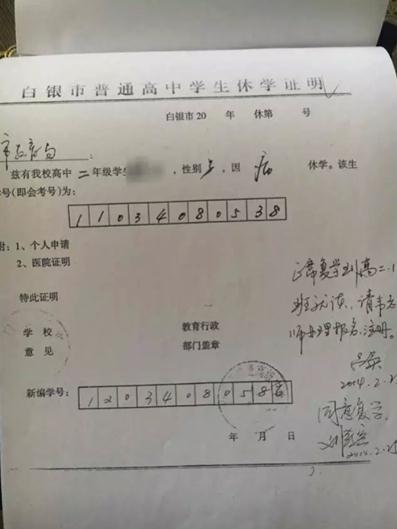 白银市普通高中学生休学证明
白银市20 年 休第 号
市教育局：
兹有我校高中二年级学生 ，性别 ，因病休学。该生
学号(即会考号)为：
11034080538
附：1、个人申请
2、医院证明
特此证明
学校 教育行政
意见 部门盖章
新编学号：
年 月 日
正常复学到高二.1
班就读，请韦老
师办理报名、注册。
2014.2.2
同意复学
2014.2.25